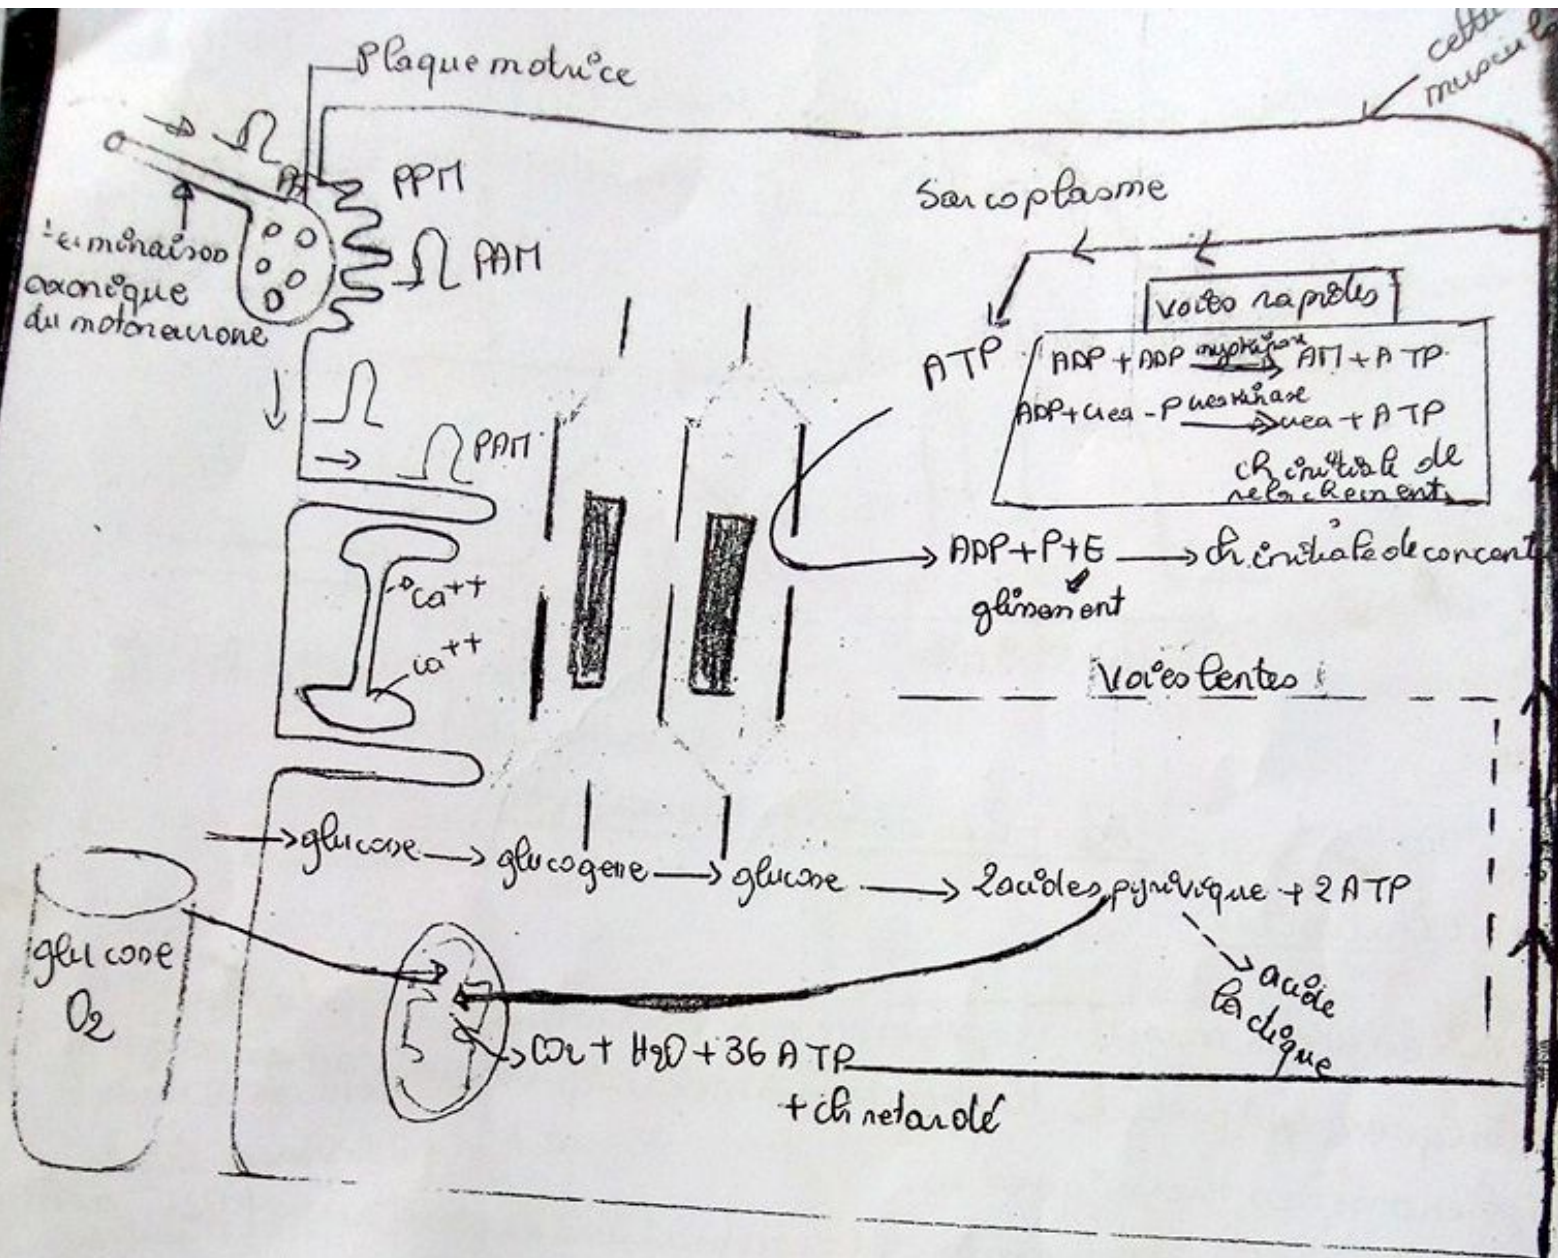 Plaque motrice
PPM
PAM
terminaison
axonique
du motoneurone
PAM
Ca++
Ca++
Sarcoplasme
ATP
voies rapides
ADP + ADP → AM + ATP
ADP + crea - P → crea + ATP
ch initiale de
relachement
ADP + P + E → ch. initiale de
glissement
Voies lentes
→ glucose → glucogene → glucose → 2 acides pyruvique + 2 ATP
acide
lactique
glucose
O2
CO2 + H2O + 36 ATP
+ ch retardé